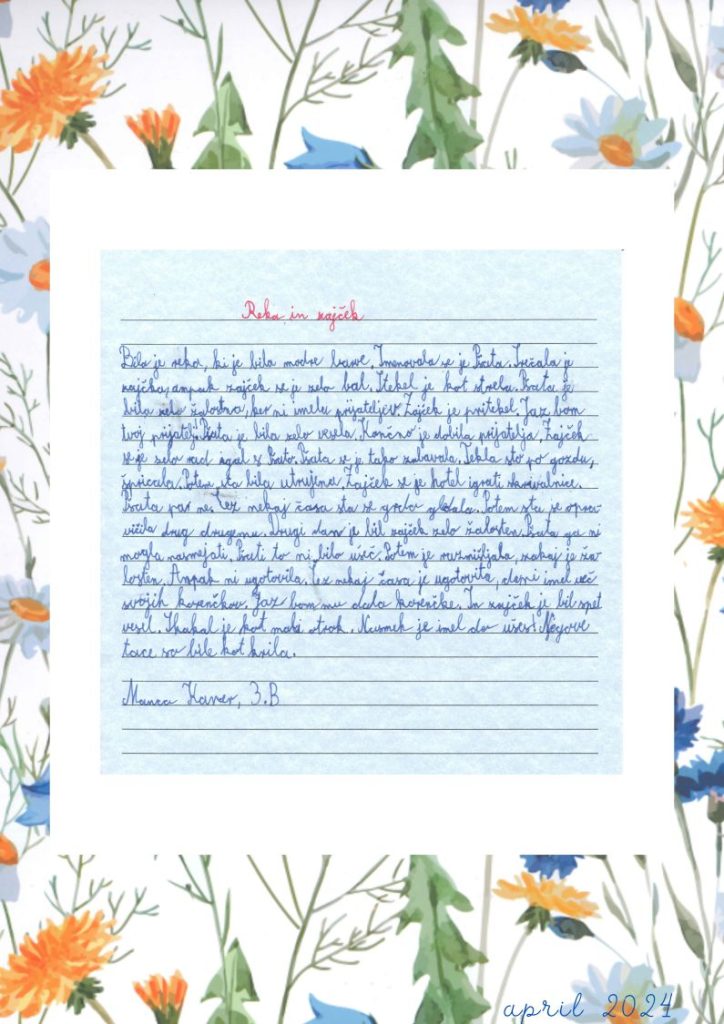 Reka in zajček
Bila je reka, ki je bila modre barve. Imenovala se je Prata. Srečala je
zajčka, ampak zajček se je zelo bal. Stekel je kot strela. Prata je
bila zelo žalostna, ker ni imela prijateljev. Zajček je pritekel. Jaz bom
tvoj prijatelj. Prata je bila zelo vesela. Končno je dobila prijatelja. Zajček
se je zelo rad igral s Prato. Prata se je tako zabavala. Tekla sta po gozdu,
špricala. Potem sta bila utrujena. Zajček se je hotel igrati skrivalnice.
Prata pa ne. Čez nekaj časa sta se grdo gledala. Potem sta se opra-
vičila drug drugemu. Drugi dan je bil zajček zelo žalosten. Prata ga ni
mogla nasmejati. Prati to ni bilo všeč. Potem je razmišljala, zakaj je ža-
losten. Ampak ni ugotovila. Čez nekaj časa je ugotovila, da ni imel več
svojih korenčkov. Jaz bom mu dala korenčke. In zajček je bil spet
vesel. Skakal je kot mali otrok. Nasmeh je imel do ušes! Njegove
tace so bile kot krila.
Manca 3.B
april 2024